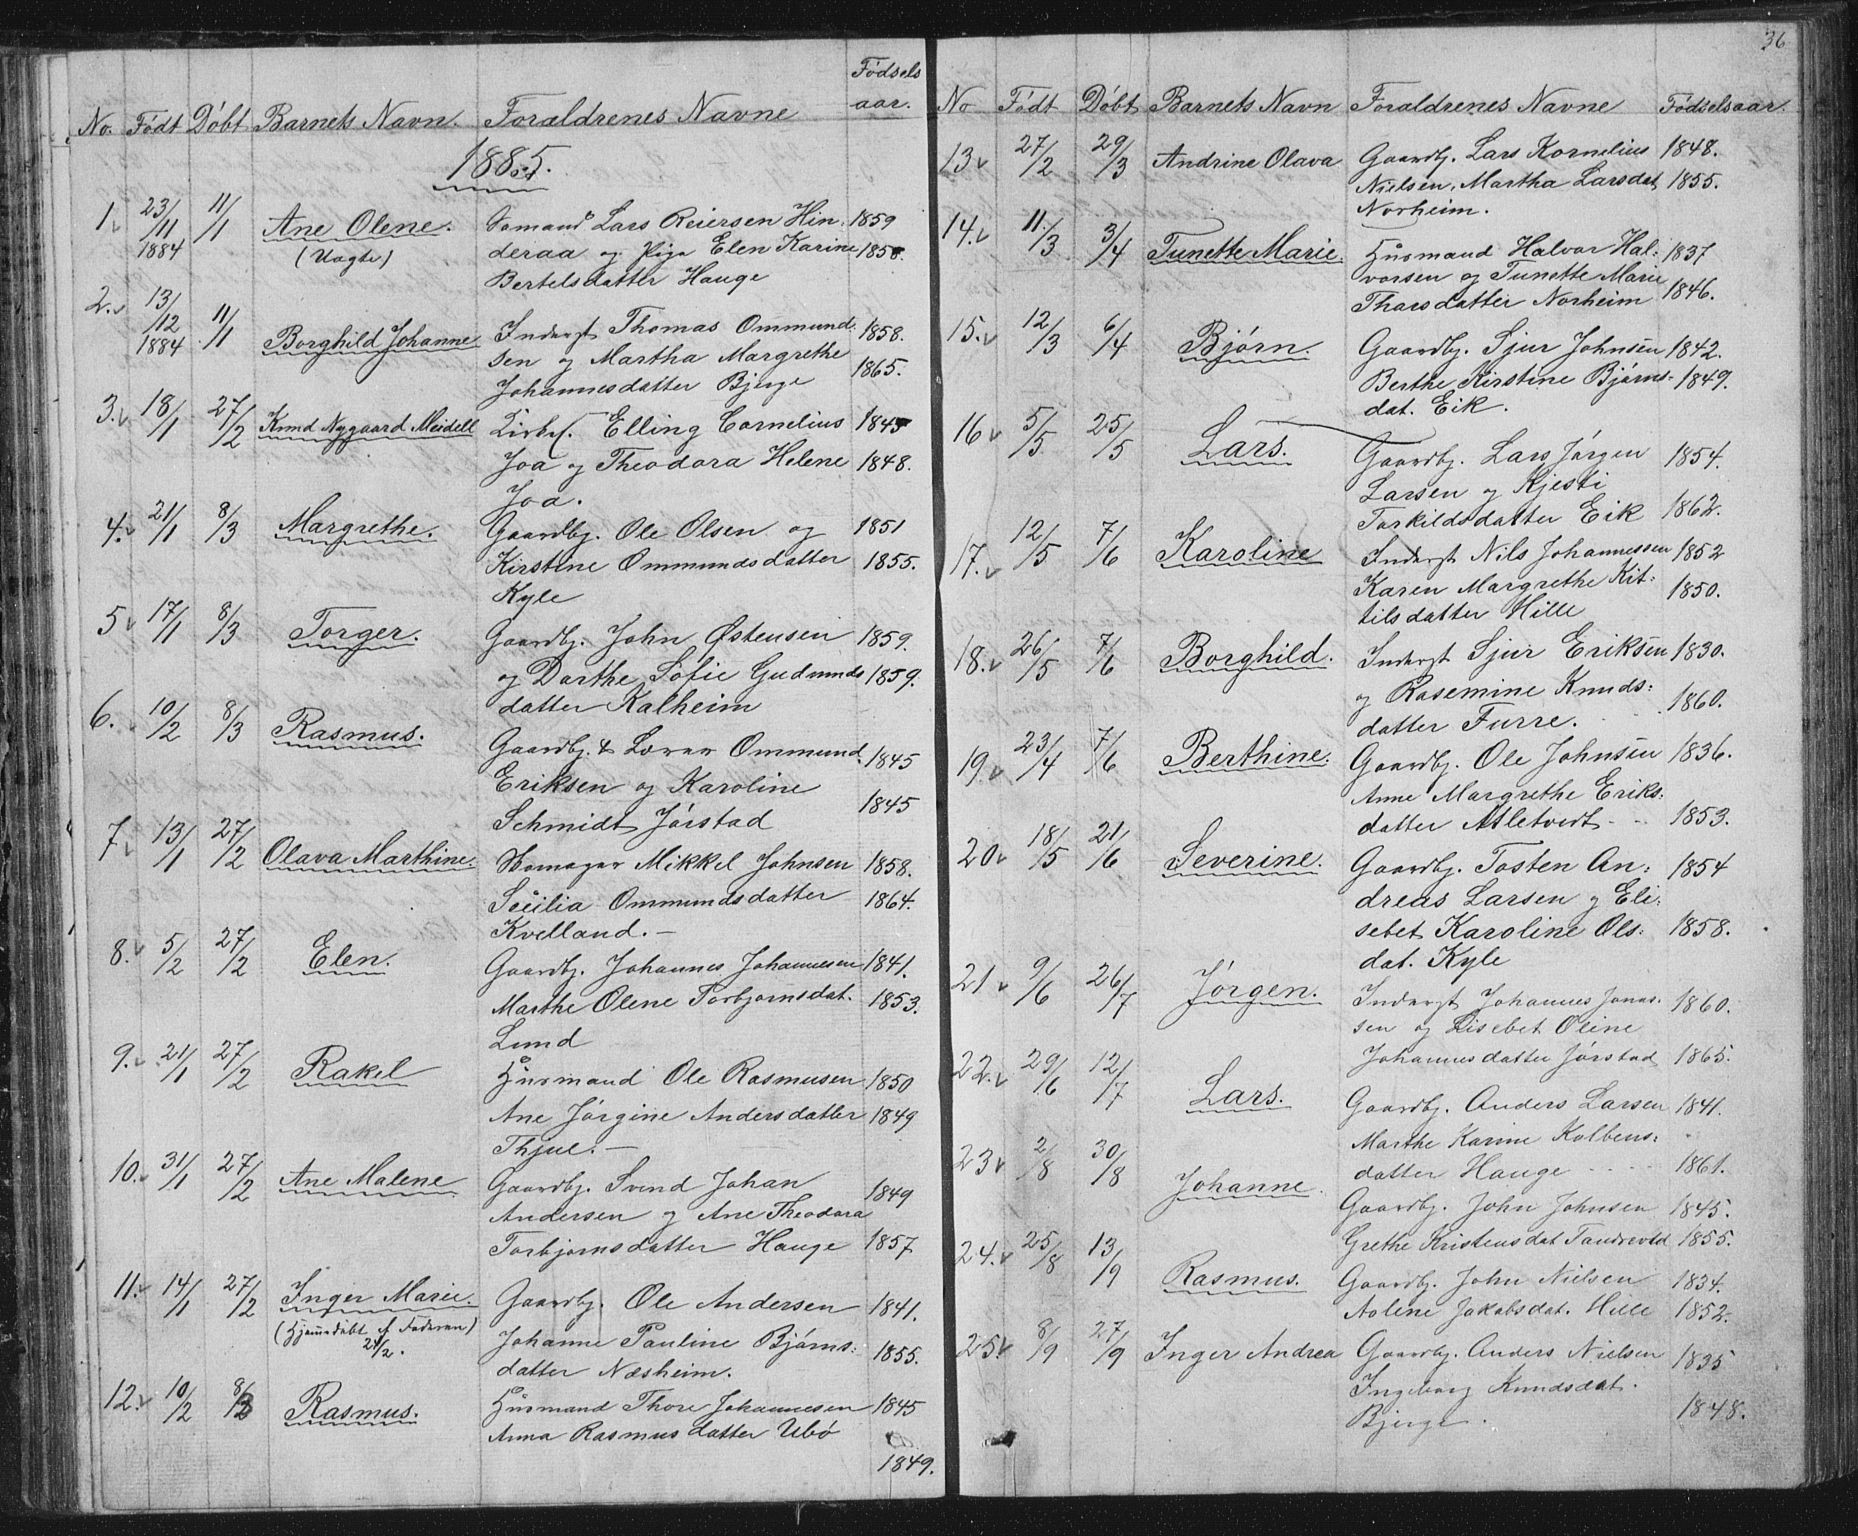 No. Født Døbt Barnets Navn. Forældrenes Navne Fødsels aar.
1885.
1. 23/11 1884 11/1 Ane Olene. (Uægte) Somand Lars Reiersen Hin 1859
deraa og Pige Elen Karine 1858.
Bertelsdatter Hauge
2. 13/12 1884 11/1 Borghild Johanne Inderst Thomas Ommund. 1858.
sen og Martha Margrethe
Johannesdatter Bjerge 1865.
3. 18/1 27/2 Knud Nygaard Meidell Kirkes. Elling Cornelius 1845
Joa og Theodora Helene 1848.
Joa.
4. 21/1 8/3 Margrethe. Gaardbr. Ole Olsen og 1851
Kirstine Ommundsdatter 1855.
Kyle
5 17/1 8/3 Torger. Gaardbr. John Østensen 1859.
og Dorthe Sofie Gudmunds 1859.
datter Kalheim
6. 10/2 8/3 Rasmus. Gaardbr. & Lærer Ommund. 1845
Eriksen og Karoline
Schmidt Jørstad 1845
7 13/1 27/2 Olava Marthine. Skomager Mikkel Johnsen 1858.
Secilia Ommundsdatter 1864.
Kvelland. —
8. 5/2 27/2 Elen. Gaardbr. Johannes Johannesen 1841.
Marthe Olene Torbjørnsdat. 1853.
Lund
9. 21/1 27/2 Rakel Husmand Ole Rasmusen 1850
Ane Jørgine Andersdatter 1849
Thjul. —
10. 31/1 27/2 Ane Malene Gaardbr. Svend Johan 1849
Andersen og Ane Theodora
Torbjørnsdatter Hauge 1857
11. 14/1 27/2 Inger Marie. Gaardbr. Ole Andersen 1841.
(Hjemmedøbt af Faderen) Johanne Pauline Bjørns: 1855.
datter Næsheim.
12. 10/2 8/3 Rasmus. Husmand Thore Johannesen 1845
Anna Rasmusdatter Ubø
1849.
36
No Født Døbt Barnets Navn Forældrenes Navne Fødselsaar.
13 27/2 29/3 Andrine Olava Gaardbr. Lars Kornelius 1848.
Nielsen, Martha Larsdat 1855.
Norheim.
14. 11/3 3/4 Tunette Marie. Husmand Halvor Hal: 1837
vorsen og Tunette Marie
Tharsdatter Norheim 1846.
15. 12/3 6/4 Bjørn. Gaardbr. Sjur Johnsen 1842.
Berthe Kirstine Bjørns: 1849.
dat. Eik.
16 5/5 25/5 Lars. Gaardbr. Lars Jørgen 1854.
Larsen og Kjesti
Torkildsdatter Eik 1862.
17. 12/5 7/6 Karoline Inderst Nils Johannessen 1852
Karen Margrethe Kit: 1850.
tilsdatter Hille
18. 26/5 7/6 Borghild. Inderst Sjur Eriksen 1830.
og Rasemine Knuds: 1860.
datter Furre.
19. 23/4 7/6 Berthine. Gaardbr. Ole Johnsen 1836.
Anne Margrethe Eriks:
datter Atletvedt 1853.
20 18/5 21/6 Severine. Gaardbr. Tosten An: 1854
dreas Larsen og Eli:
sebet Karoline Ols: 1858.
dat. Kyle
21 9/6 26/7 Jørgen. Inderst Johannes Jonas: 1860.
sen og Lisebet Oline
Johannesdatter Jørstad 1865.
22. 29/6 12/7 Lars. Gaardbr. Anders Larsen 1841.
Marthe Karine Kolbens:
datter Hauge 1861.
23 2/8 30/8 Johanne. Gaardbr. John Johnsen 1845.
Grethe Kristensdat Tandrevold 1855.
24. 25/8 13/9 Rasmus. Gaardbr. John Nielsen 1834.
Aolene Jakobsdat. Hille 1852.
25. 8/9 27/9 Inger Andrea Gaardbr. Anders Nielsen 1835
Ingeborg Knudsdat.
Bjerge. 1848.